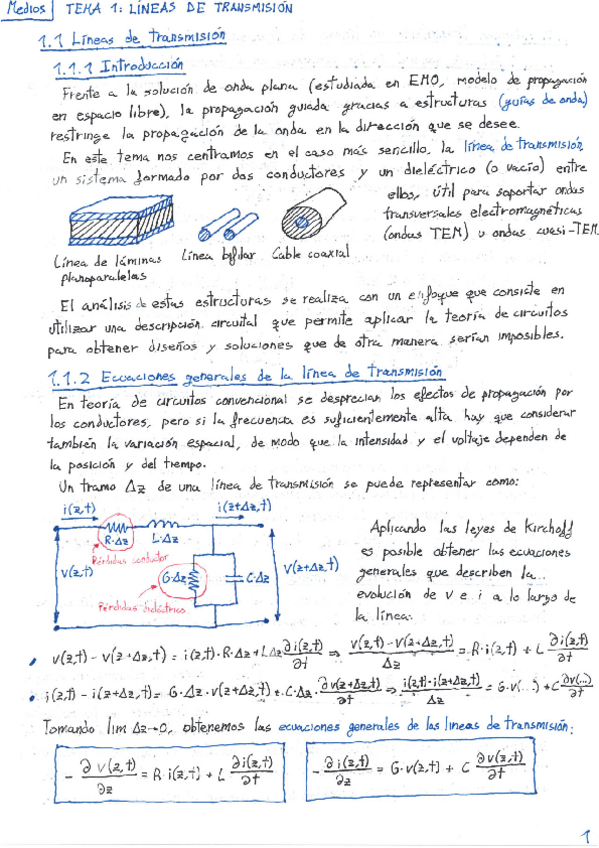 Medios TEMA 1: LÍNEAS DE TRANSMISIÓN
1.1 Líneas de transmisión
1.1.1 Introducción
Frente a la solución de onda plana (estudiada en EMO, modelo de propagación
en espacio libre), la propagación guiada gracias a estructuras (guías de onda)
restringe la propagación de la onda en la dirección que se desee.
En este tema nos centramos en el caso más sencillo, la línea de transmisión
un sistema formado por dos conductores y un dieléctrico (o vacío) entre
ellos, útil para soportar ondas
transversales electromagnéticas
(ondas TEM) u ondas cuasi-TEM.
Línea de láminas planoparalelas
Línea bifilar
Cable coaxial
El análisis de estas estructuras se realiza con un enfoque que consiste en
utilizar una descripción circuital que permite aplicar la teoría de circuitos
para obtener diseños y soluciones que de otra manera serían imposibles.
1.1.2 Ecuaciones generales de la línea de transmisión
En teoría de circuitos convencional se desprecian los efectos de propagación por
los conductores, pero si la frecuencia es suficientemente alta hay que considerar
también la variación espacial, de modo que la intensidad y el voltaje dependen de
la posición y del tiempo.
Un tramo Δz de una línea de transmisión se puede representar como:
i(z,t)
i(z+Δz,t)
R·Δz L·Δz
Pérdidas conductor
v(z,t)
G·Δz C·Δz
v(z+Δz,t)
Pérdidas dieléctrico
Aplicando las leyes de Kirchoff
es posible obtener las ecuaciones
generales que describen la
evolución de v e i a lo largo de
la línea.
• v(z,t) - v(z+Δz,t) = i(z,t)·R·Δz + LΔz ∂i(z,t)/∂t ⇒ v(z,t)-v(z+Δz,t)/Δz = R·i(z,t) + L ∂i(z,t)/∂t
• i(z,t) - i(z+Δz,t) = G·Δz·v(z+Δz,t) + C·Δz·∂v(z+Δz,t)/∂t ⇒ i(z,t)-i(z+Δz,t)/Δz = G·v(...) + C ∂v(...)/∂t
Tomando lim Δz→0, obtenemos las ecuaciones generales de las lineas de transmisión:
-∂v(z,t)/∂z = R·i(z,t) + L ∂i(z,t)/∂t
-∂i(z,t)/∂z = G·v(z,t) + C ∂v(z,t)/∂t
1